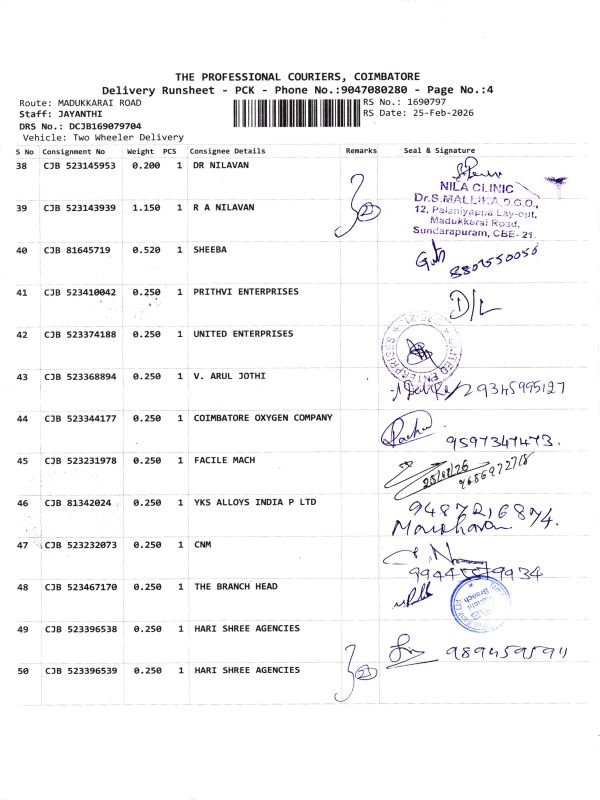 THE PROFESSIONAL COURIERS, COIMBATORE
Delivery Runsheet - PCK - Phone No.:9047080280 - Page No.:4
Route: MADUKKARAI ROAD
RS No.: 1690797
Staff: JAYANTHI
RS Date: 25-Feb-2026
DRS No.: DCJB169079704
Vehicle: Two Wheeler Delivery
S No Consignment No Weight PCS Consignee Details Remarks Seal & Signature
38 CJB 523145953 0.200 1 DR NILAVAN
NILA CLINIC
Dr.S.MALLIKA,D.G.O.,
39 CJB 523143939 1.150 1 R A NILAVAN
12, Palaniyappa Lay-out,
Madukkarai Road,
Sundarapuram, CBE- 21.
40 CJB 81645719 0.520 1 SHEEBA
41 CJB 523410042 0.250 1 PRITHVI ENTERPRISES
D/L
42 CJB 523374188 0.250 1 UNITED ENTERPRISES
UNITED ENTERPRISES
43 CJB 523368894 0.250 1 V. ARUL JOTHI
9345995127
44 CJB 523344177 0.250 1 COIMBATORE OXYGEN COMPANY
9597347473.
45 CJB 523231978 0.250 1 FACILE MACH
25/02/26
9686972718
46 CJB 81342024 0.250 1 YKS ALLOYS INDIA P LTD
9487216874.
Manoharan
47 CJB 523232073 0.250 1 CNM
48 CJB 523467170 0.250 1 THE BRANCH HEAD
Branch
49 CJB 523396538 0.250 1 HARI SHREE AGENCIES
50 CJB 523396539 0.250 1 HARI SHREE AGENCIES